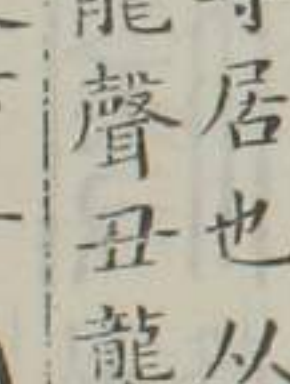 居也从
聲丑龍